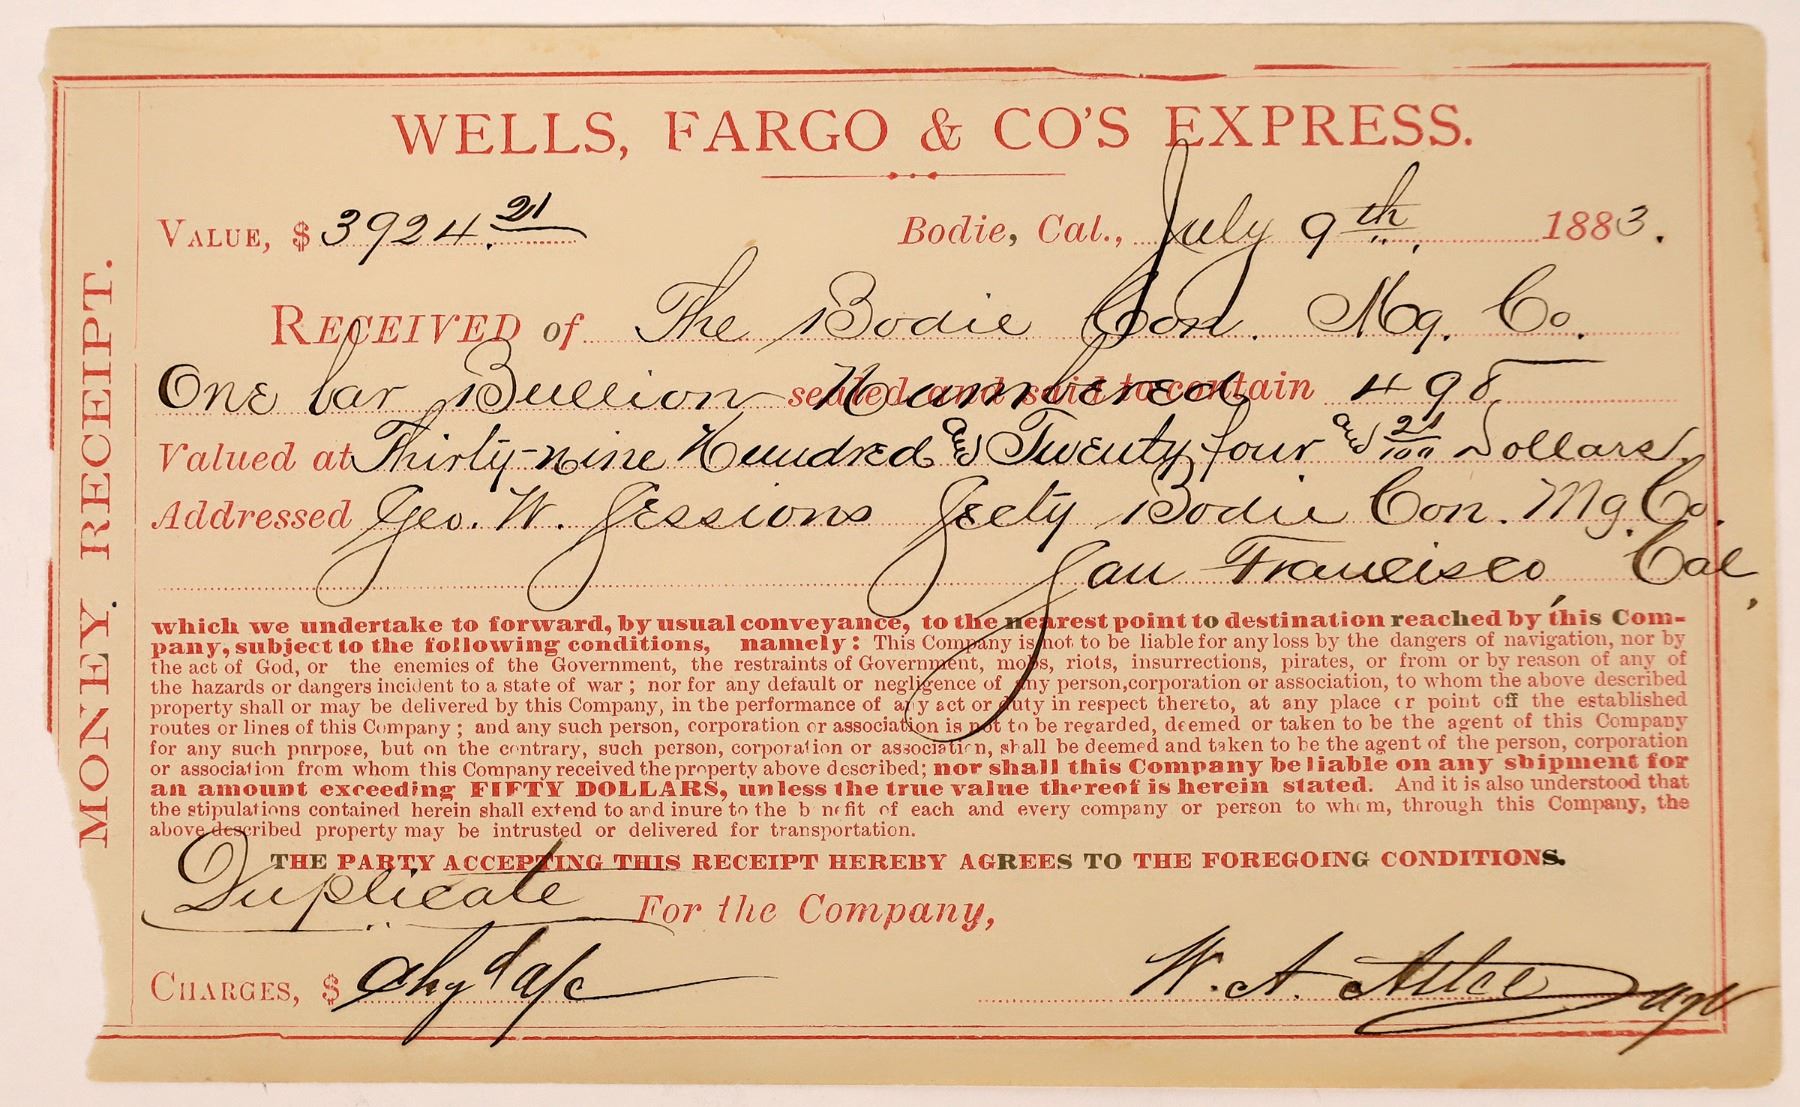 WELLS, FARGO & CO'S EXPRESS.
VALUE, $ 3924.21 Bodie, Cal., July 9th 1883.
RECEIVED of The Bodie Con. Mg. Co.
One bar Bullion sealed and said to contain Numbered 498
Valued at Thirty-nine Hundred and Twenty four and 21/100 Dollars.
Addressed Geo. W. Sessions Secty Bodie Con. Mg. Co.
San Francisco Cal,
which we undertake to forward, by usual conveyance, to the nearest point to destination reached by this Com-
pany, subject to the following conditions, namely: This Company is not to be liable for any loss by the dangers of navigation, nor by
the act of God, or the enemies of the Government, the restraints of Government, mobs, riots, insurrections, pirates, or from or by reason of any of
the hazards or dangers incident to a state of war; nor for any default or negligence of any person, corporation or association, to whom the above described
property shall or may be delivered by this Company, in the performance of any act or duty in respect thereto, at any place or point off the established
routes or lines of this Company; and any such person, corporation or association is not to be regarded, deemed or taken to be the agent of this Company
for any such purpose, but on the contrary, such person, corporation or association, shall be deemed and taken to be the agent of the person, corporation
or association from whom this Company received the property above described; nor shall this Company be liable on any shipment for
an amount exceeding FIFTY DOLLARS, unless the true value thereof is herein stated. And it is also understood that
the stipulations contained herein shall extend to and inure to the benefit of each and every company or person to whom, through this Company, the
above described property may be intrusted or delivered for transportation.
THE PARTY ACCEPTING THIS RECEIPT HEREBY AGREES TO THE FOREGOING CONDITIONS.
Duplicate For the Company,
CHARGES, $ Chgd a/c W. A. Agt
MONEY RECEIPT.